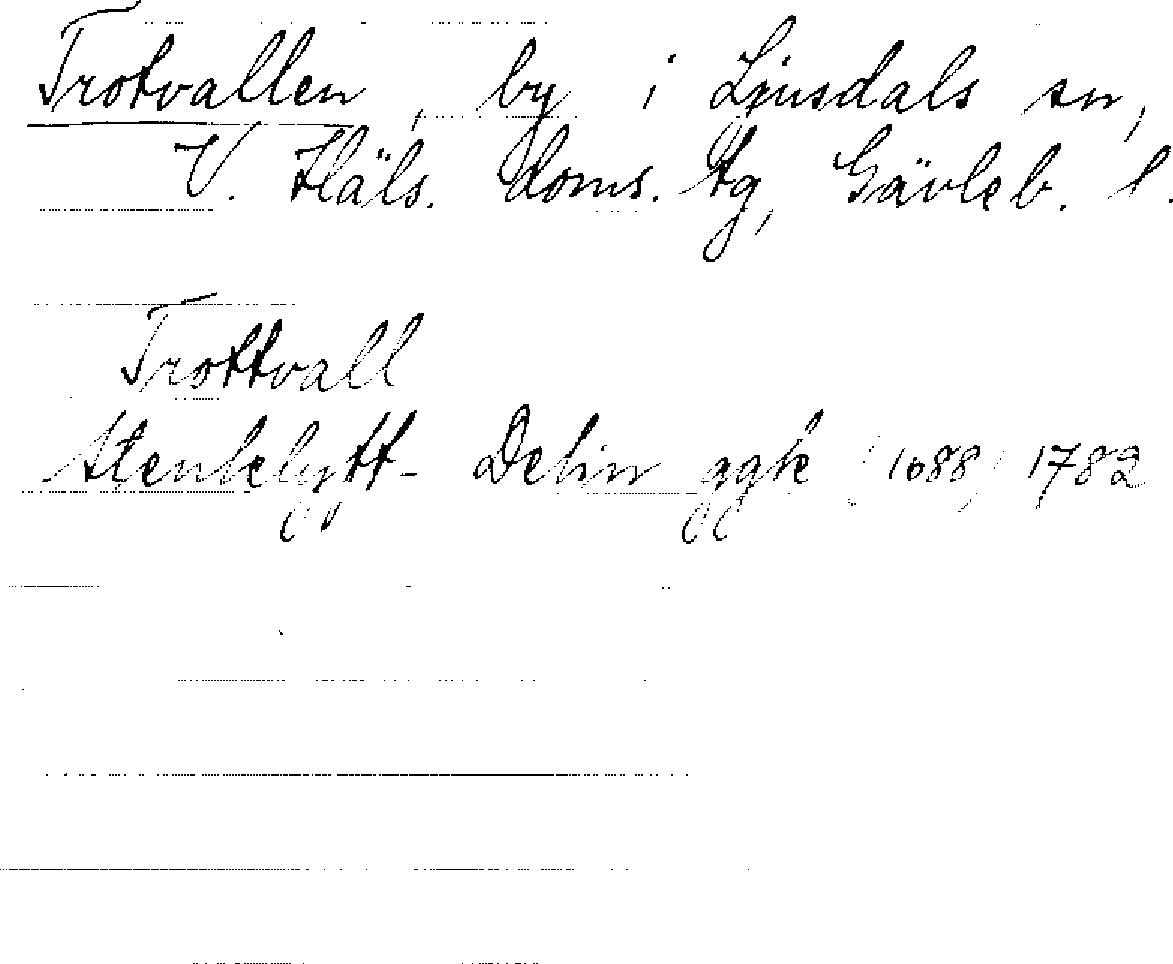 Trotvallen, by i Ljusdals sn,
V. Häls. doms. tg, Gävleb. l.
Trottvall
Stenklyft- Delin ggk (1688) 1782